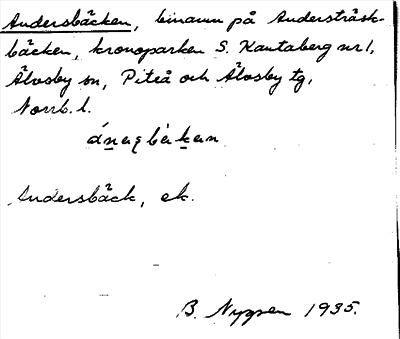 Andersbäcken, binamn på Andersträsk-
bäcken, kronoparken S. Kantaberg nr 1,
Älvsby sn, Piteå och Älvsby tg,
Norrb. l.
Andersbäck, ek.
B. Nygren 1935.